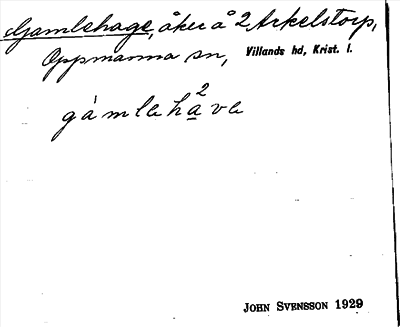 Gamlehage, åker å 2 Arkelstorp,
Oppmanna sn, Villands hd, Krist. l.
gàmleha²ve
JOHN SVENSSON 1929